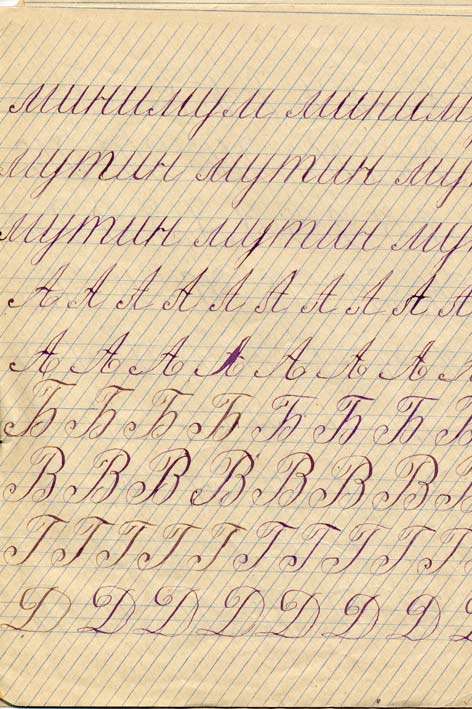 минимум миним
мутин мутин му
мутин мутин му
А А А А А А А А А А
А А А А А А А А
Б Б Б Б Б Б Б Б
В В В В В В В В
Г Г Г Г Г Г Г Г Г Г
Д Д Д Д Д Д Д Д